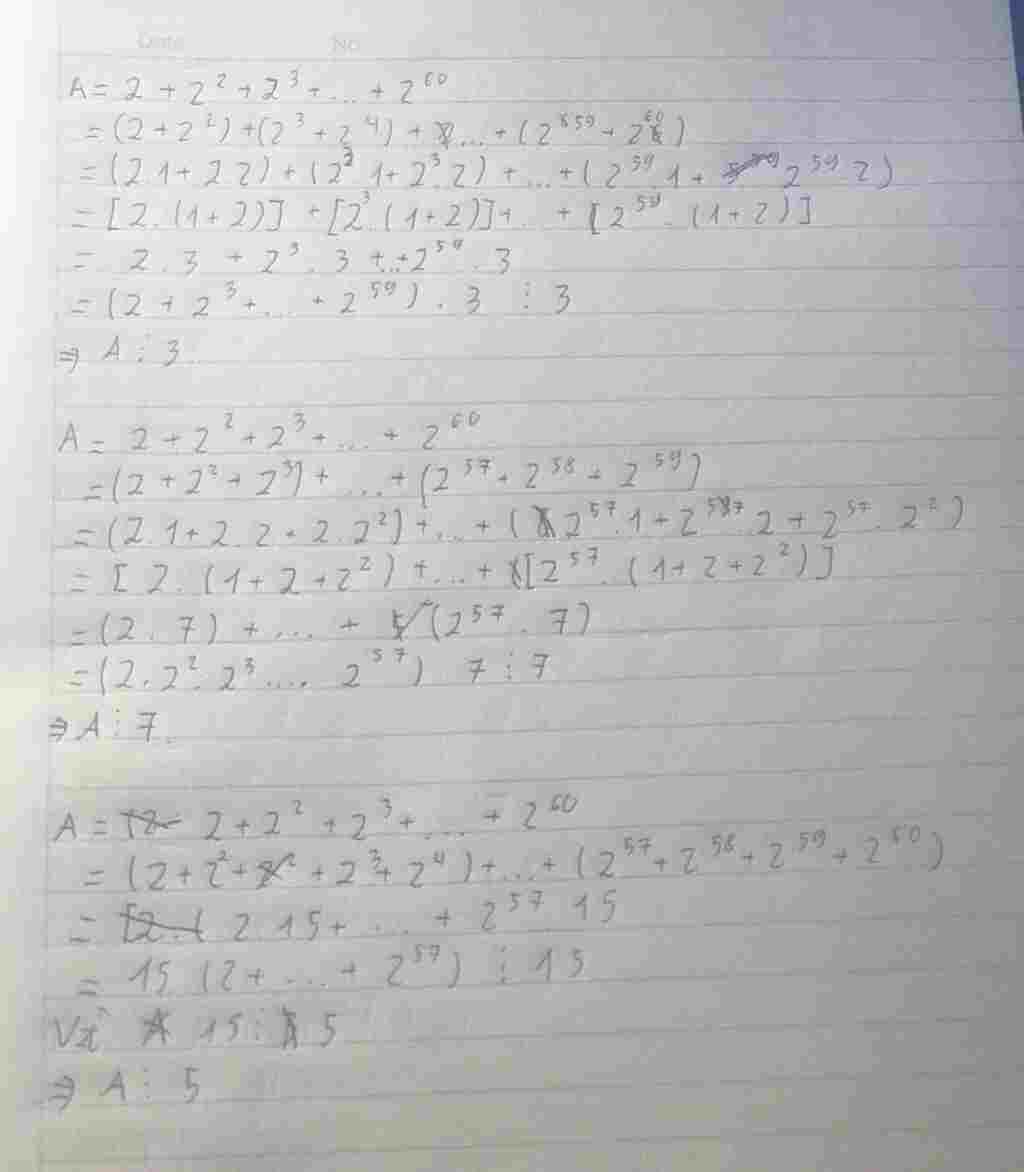 Date No
A = 2 + 2² + 2³ + ... + 2⁶⁰
= (2 + 2²) + (2³ + 2⁴) + ... + (2⁵⁹ + 2⁶⁰)
= (2.1 + 2.2) + (2³.1 + 2³.2) + ... + (2⁵⁹.1 + 2⁵⁹.2)
= [2.(1+2)] + [2³.(1+2)] + ... + [2⁵⁹.(1+2)]
= 2.3 + 2³.3 + ... + 2⁵⁹.3
= (2 + 2³ + ... + 2⁵⁹).3 ⋮ 3
⇒ A ⋮ 3
A = 2 + 2² + 2³ + ... + 2⁶⁰
= (2 + 2² + 2³) + ... + (2⁵⁷ + 2⁵⁸ + 2⁵⁹)
= (2.1 + 2.2 + 2.2²) + ... + (2⁵⁷.1 + 2⁵⁷.2 + 2⁵⁷.2²)
= [2.(1 + 2 + 2²) + ... + [2⁵⁷.(1 + 2 + 2²)]
= (2.7) + ... + (2⁵⁷.7)
= (2.2².2³.... 2⁵⁷) 7 ⋮ 7
⇒ A ⋮ 7.
A = 2 + 2² + 2³ + ... + 2⁶⁰
= (2 + 2² + 2³ + 2⁴) + ... + (2⁵⁷ + 2⁵⁸ + 2⁵⁹ + 2⁶⁰)
= 2.15 + ... + 2⁵⁷.15
= 15.(2 + ... + 2⁵⁷) ⋮ 15
Vì 15 ⋮ 5
⇒ A ⋮ 5